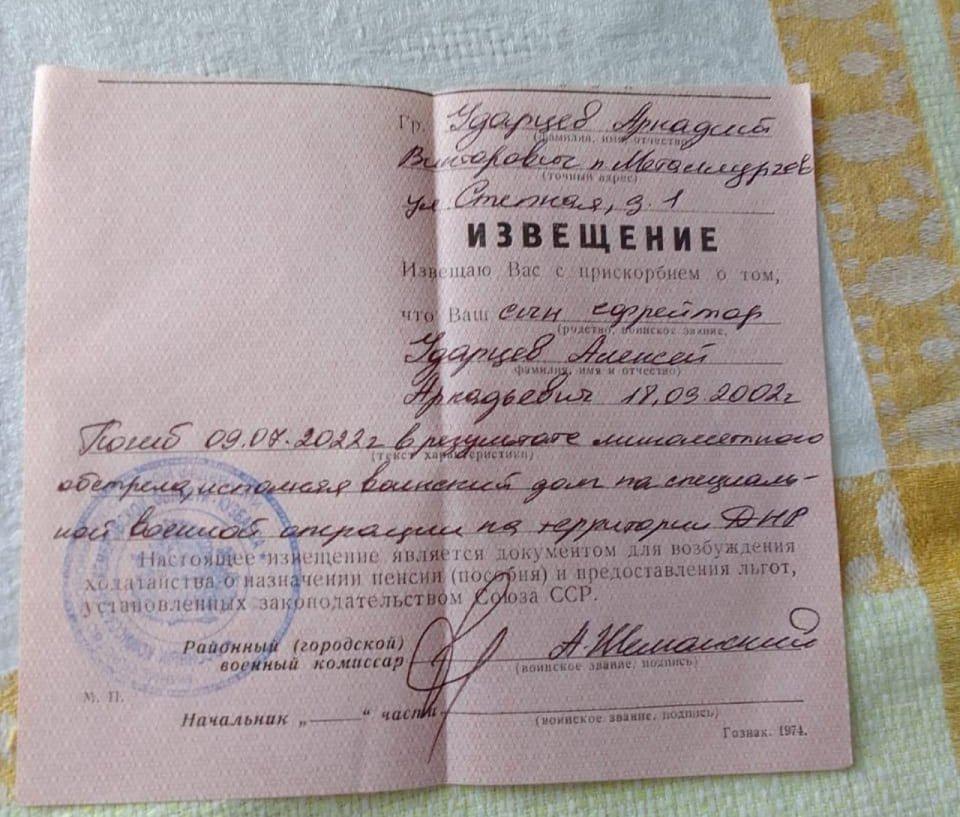 Гр. Ударцев Аркадий
(фамилия, имя, отчество)
Викторович п. Металлургов
(точный адрес)
ул. Степная, д. 1
ИЗВЕЩЕНИЕ
Извещаю Вас с прискорбием о том,
что Ваш сын ефрейтор
(родство, воинское звание,
Ударцев Алексей
фамилия, имя и отчество)
Аркадьевич 18.09.2002г
Погиб 09.07.2022г в результате минометного
(текст характеристики)
обстрела, исполняя воинский долг на специаль-
ной военной операции на территории ДНР
Настоящее извещение является документом для возбуждения
ходатайства о назначении пенсии (пособия) и предоставления льгот,
установленных законодательством Союза ССР.
Районный (городской)
военный комиссар А.
(воинское звание, подпись)
М. П.
Начальник „ “ части
(воинское звание, подпись)
Гознак. 1974.